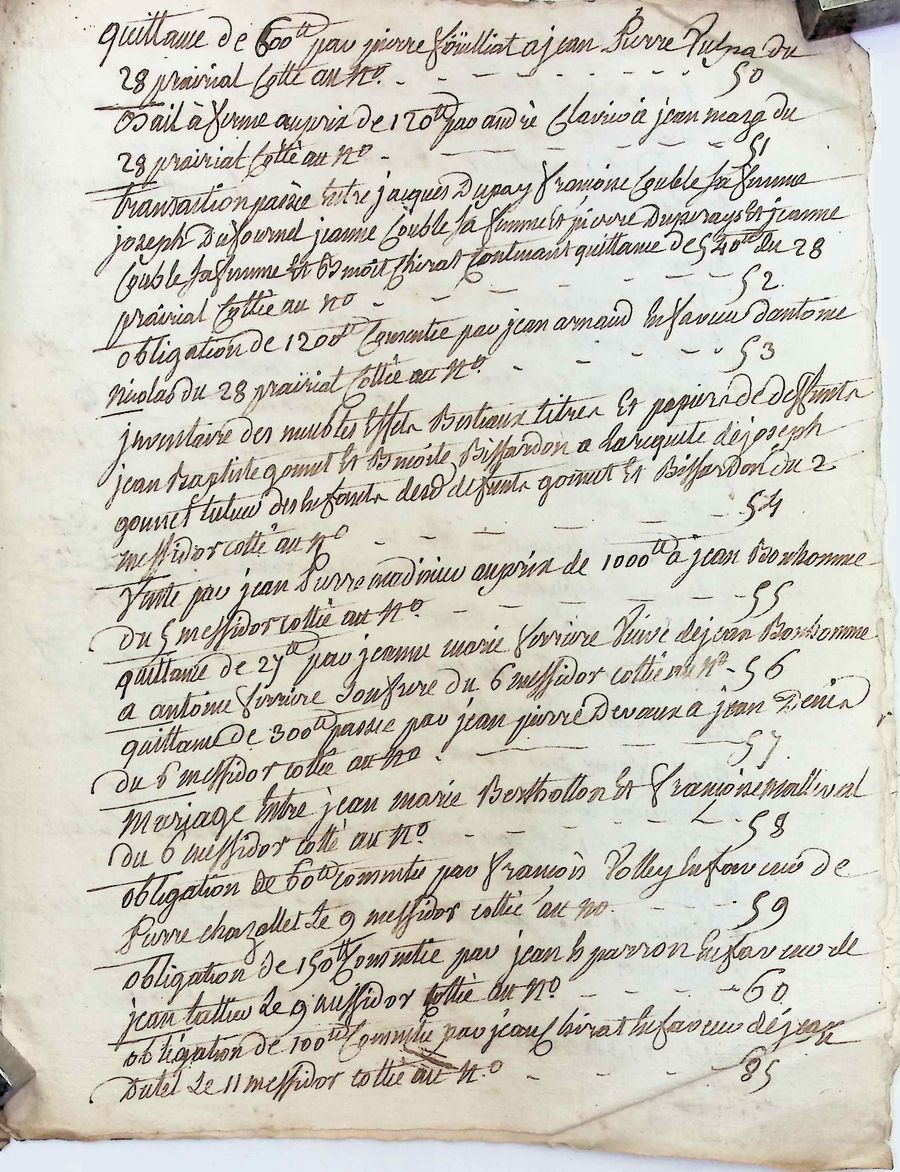 quittance de 600# par pierre foüilliat a jean Pierre du
28 prairial Cotté au No. - - - - - - 50
Bail à ferme au prix de 120# par andrè Clavier à jean mazq du
28 prairial Cottè au No - - - - - 51
transaction passèe Entre jacques Dupay françoise Couble Sa femme
joseph Dufournel jeanne Couble Sa femme Et pierre Duperays Et jeanne
Couble Sa femme Et Benoit Chirat Contenant quittance de 540# du 28
prairial Cottèe au No - - - - - 52
obligation de 1200# Consentie par jean arnaud En faveur d'antoine
Nicolas du 28 prairial Cottèe au No. - - - - 53
jnventaire des meubles Effets Bestiaux titres Et papiers de deffunts
jean Baptiste gonnet Et Benoite Bissardon a la requete de joseph
gonnet tuteur des Enfants desd defunts gonnet Et Bissardon du 2
messidor cottè au No - - - - - - 54
Vente par jean Pierre madinier au prix de 1000# a jean Bonhomme
du 5 messidor cottèe au No - - - - - 55
quittance de 27# par jeanne marie ferriere Veuve de jean Bonhomme
a antoine ferriere Son frere du 6 messidor cottèe au No - 56
quittance de 300# passèe par jean pierre Devaux a jean Denis
du 6 messidor cottèe au No . - - - - 57
Mariage Entre jean marie Berthollon Et françoise mallieval
du 6 messidor cottè au No. - - - - - 58
obligation de 60# consentie par françois Volley En faveur de
Pierre chazallet Le 9 messidor cottèe au no. - - - 59
obligation de 150# Consentie par jean En faveur de
jean Le 9 messidor Cottèe au No. - - - - 60
obligation de 100# Consentie par jean Chirat En faveur de jean
Dutel Le 11 messidor cottèe au No - - - - 85